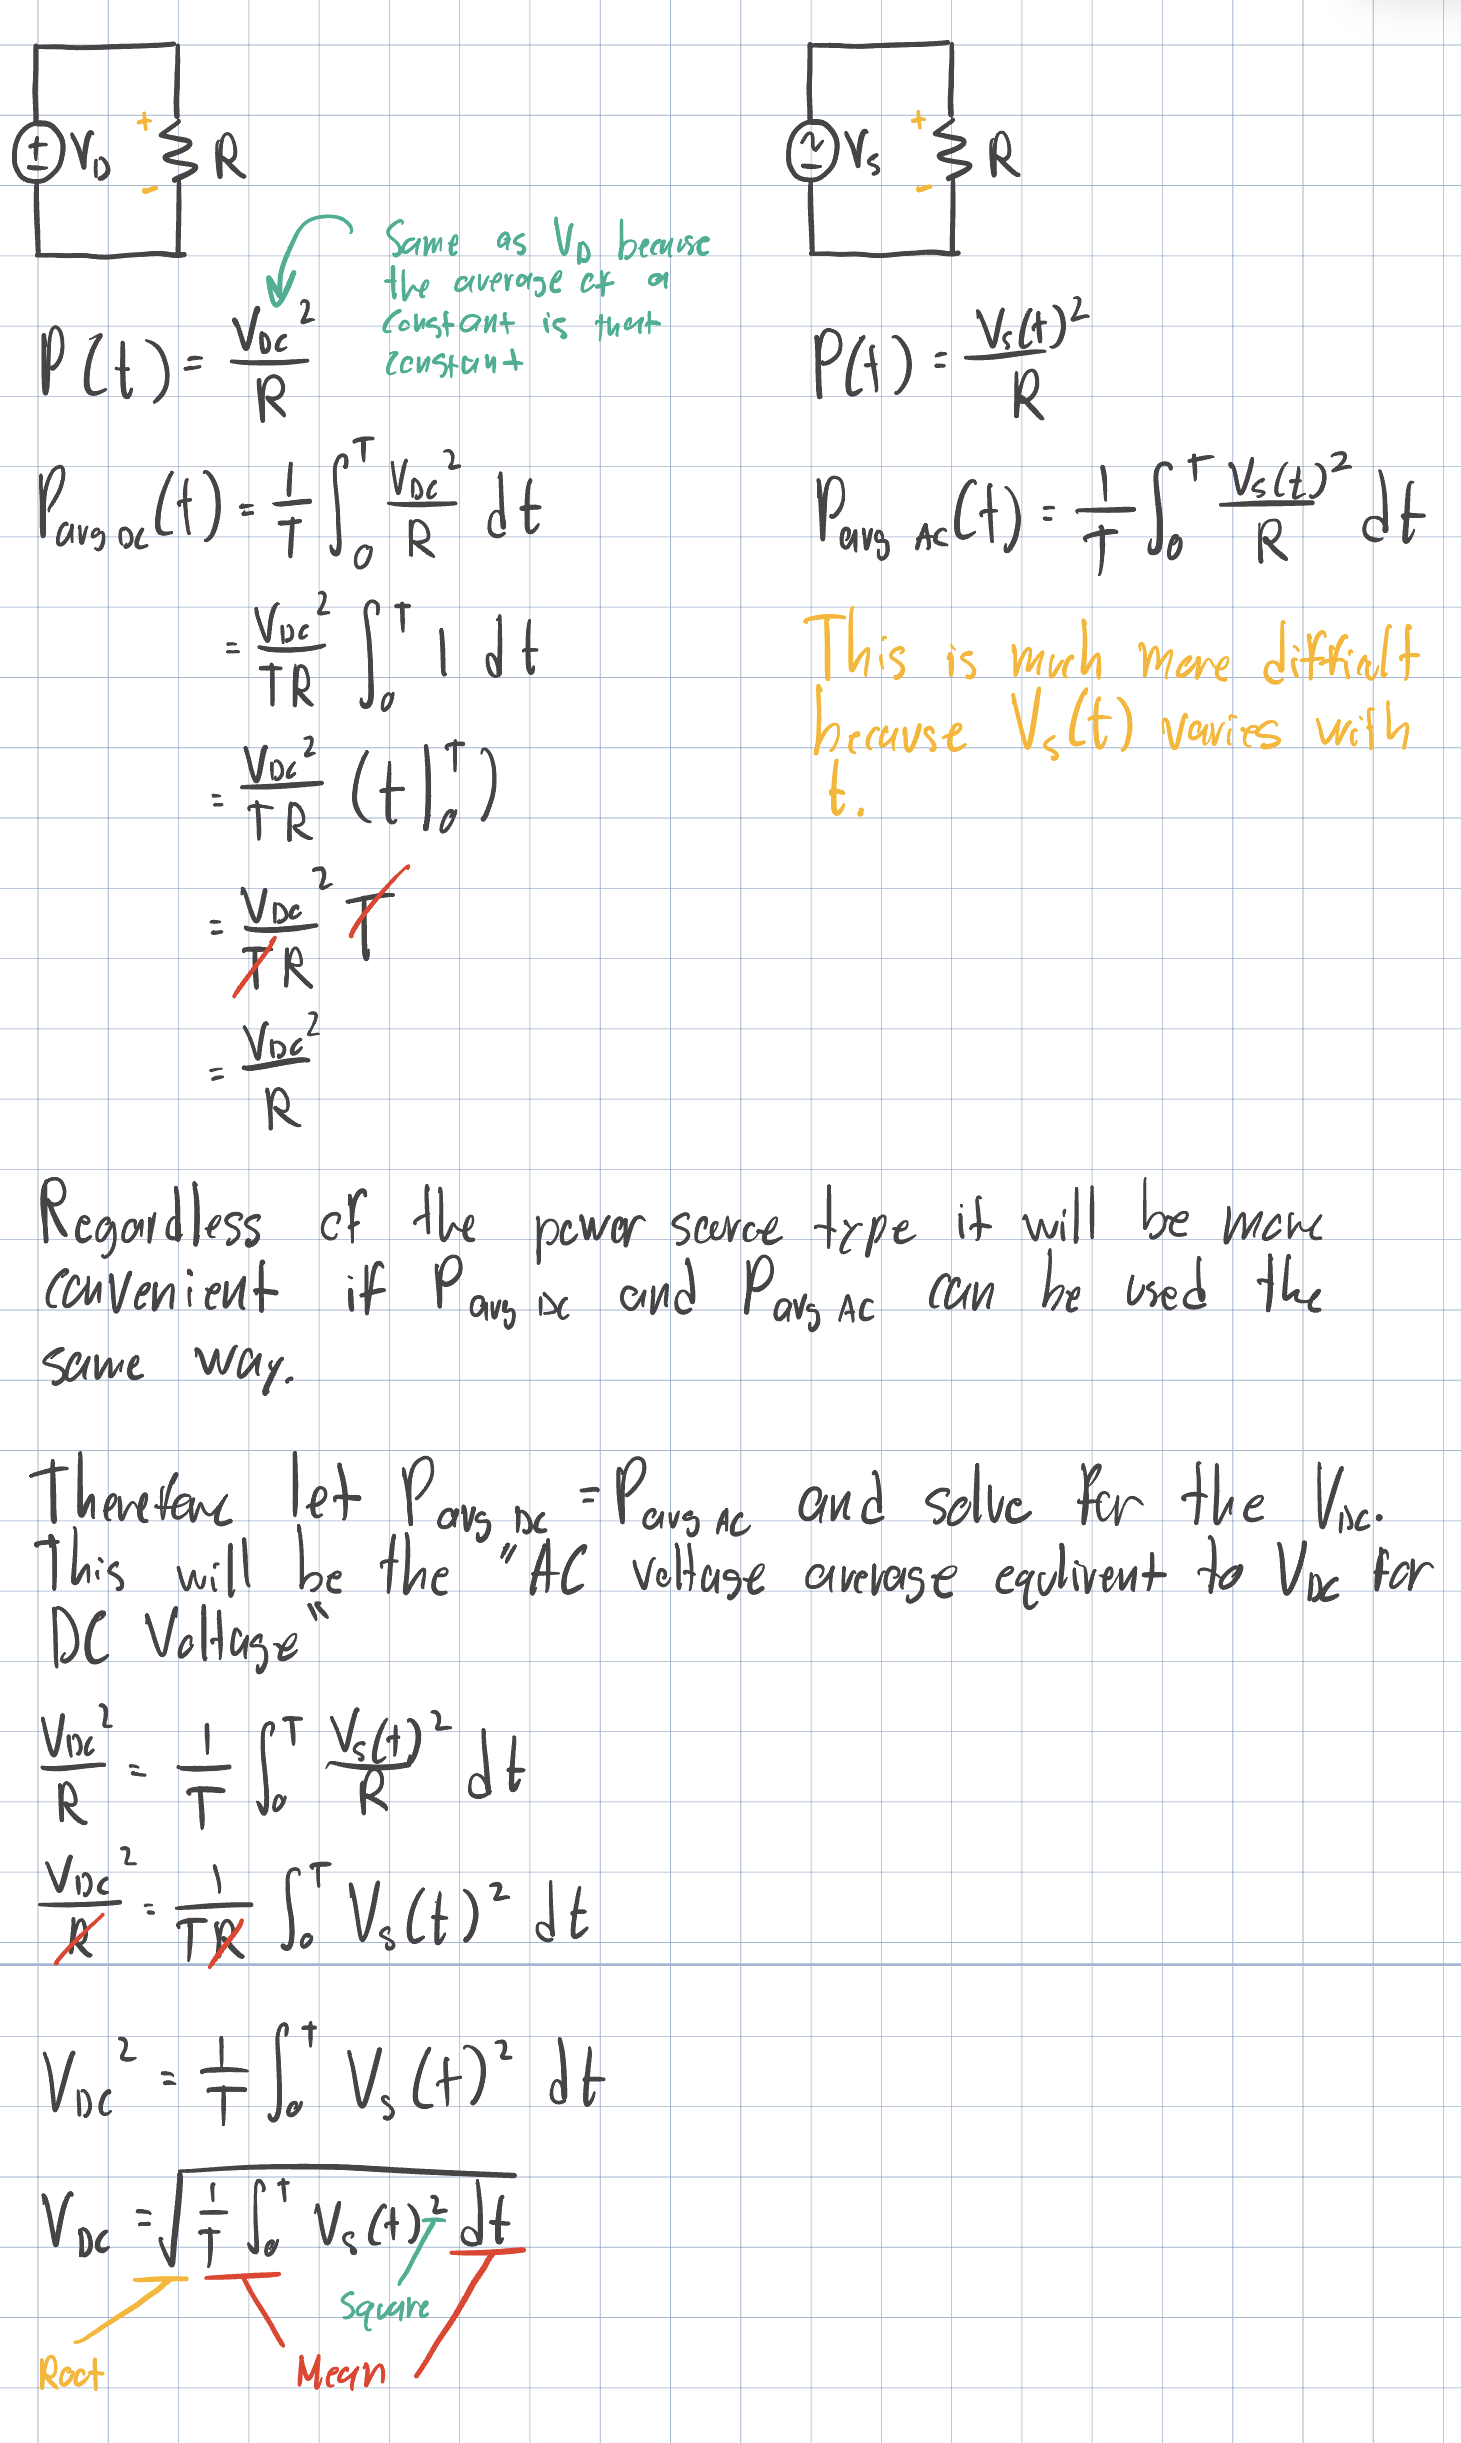 V_D R
+
-
V_S R
+
-
Same as V_D because
the average of a
constant is that
constant
P(t) = V_DC^2 / R
P(t) = V_s(t)^2 / R
P_avg DC(t) = 1/T ∫_0^T V_DC^2 / R dt
P_avg AC(t) = 1/T ∫_0^T V_s(t)^2 / R dt
= V_DC^2 / TR ∫_0^T 1 dt
This is much more difficult
because V_s(t) varies with
t.
= V_DC^2 / TR (t|_0^T)
= V_DC^2 / TR T
= V_DC^2 / R
Regardless of the power source type it will be more
convenient if P_avg DC and P_avg AC can be used the
same way.
Therefore let P_avg DC = P_avg AC and solve for the V_DC.
This will be the "AC voltage average equlivent to V_DC for
DC Voltage"
V_DC^2 / R = 1/T ∫_0^T V_s(t)^2 / R dt
V_DC^2 / R = 1/TR ∫_0^T V_s(t)^2 dt
V_DC^2 = 1/T ∫_0^T V_s(t)^2 dt
V_DC = √(1/T ∫_0^T V_s(t)^2 dt)
Square
Root
Mean